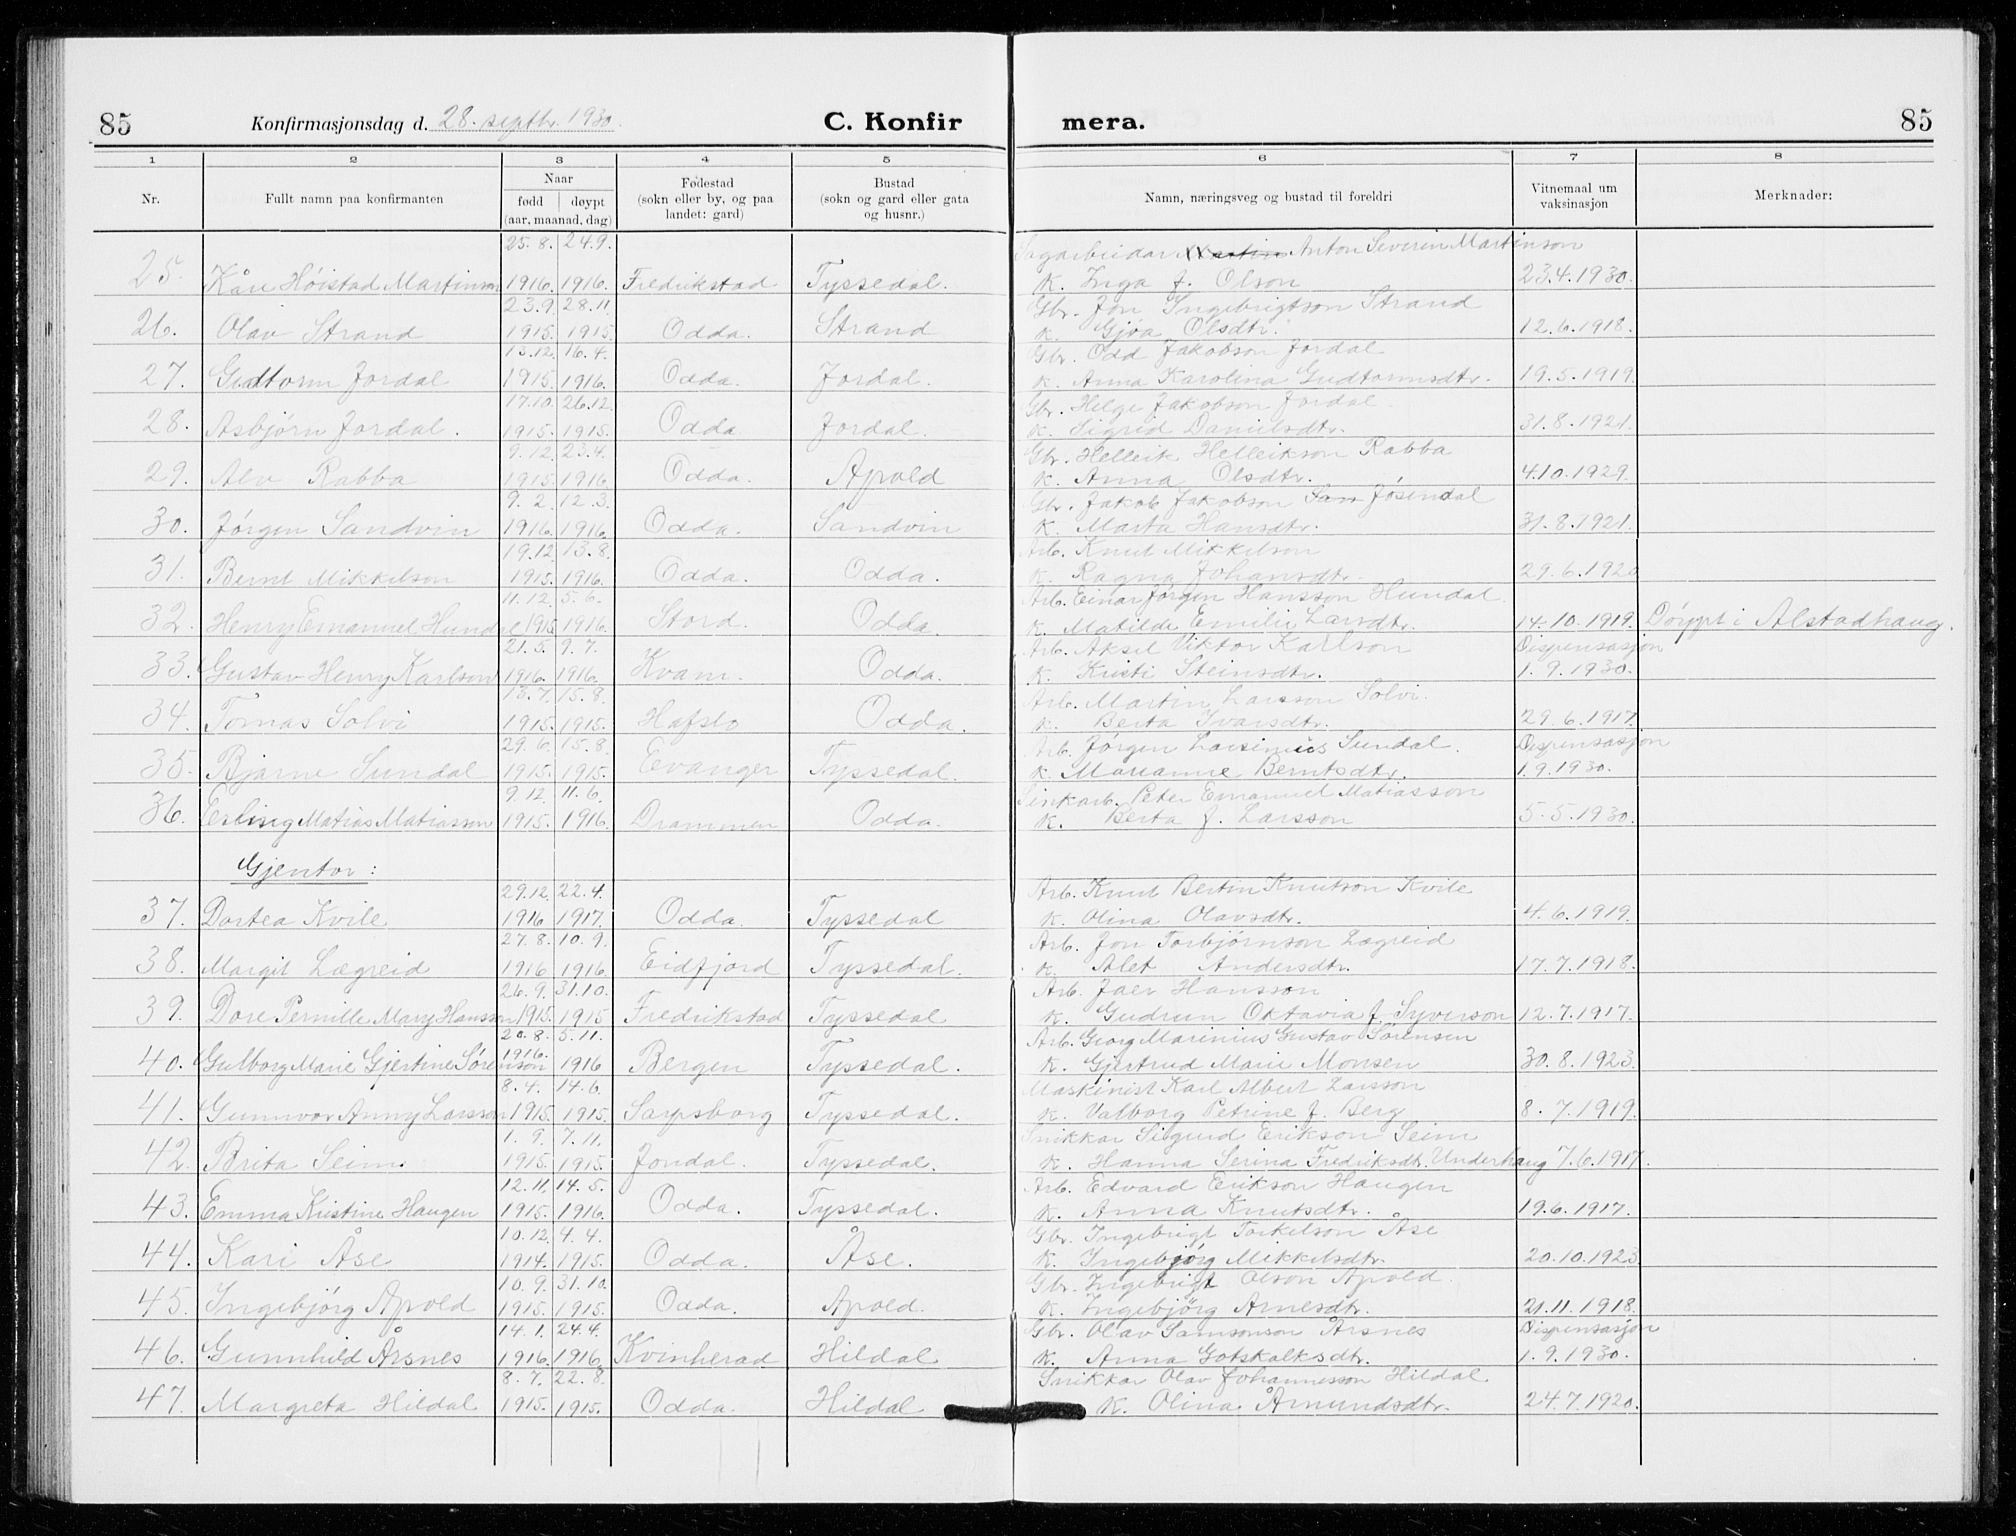 85 Konfirmasjonsdag d. 28. septbr. 1930. C. Konfir mera. 85
1 2 3 4 5 6 7 8
Nr. Fullt namn paa konfirmanten Naar født | døypt (aar, maanad, dag) Fødestad (sokn eller by, og paa landet: gard) Bustad (sokn og gard eller gata og husnr.) Namn, næringsveg og bustad til foreldri Vitnemaal um vaksinasjon Merknader:
25. 8. 24.9. Sagarbeidar Martin Anton Severin Martinson
25. Kåre Høistad Martinson 1916. 1916. Fredrikstad Tyssedal. K. Inga f. Olson 23.4.1930.
23.9. 28.11. Gbr. Jon Ingebrigtson Strand
26. Olav Strand 1915. 1915. Odda. Strand K. Gjøa Olsdtr. 12.6.1918.
13.12. 16.4. Gbr. Odd Jakobson Jordal
27. Gudtorm Jordal 1915. 1916. Odda. Jordal. K. Anna Karolina Gudtormsdtr. 19.5.1919.
17.10. 26.12. Gbr. Helge Jakobson Jordal.
28. Asbjørn Jordal. 1915. 1915. Odda. Jordal. K. Sigrid Danielsdtr. 31.8.1921.
9.12. 23.4. Gbr. Helleik Helleikson Rabba
29. Alv Rabba 1915. 1916. Odda. Apold K. Anna Olsdtr. 4.10.1929.
9. 2. 12. 3. Gbr. Jakob Jakobson San Jøsendal
30. Jørgen Sandvin 1916. 1916. Odda. Sandvin K. Marta Hansdtr. 31.8.1921.
19.12. 13.8. Arb. Knut Mikkelson
31. Bernt Mikkelson 1915. 1916. Odda. Odda. K. Ragna Johansdtr. 29.6.1920
11.12. 5.6. Arb. Einar Jørgen Hansson Hundal.
32. Henry Emanuel Hundal 1915 1916. Stord. Odda. K. Matilde Emilie Larsdtr. 14.10.1919. Døypt i Alstadhaug.
21.5. 9.7. Arb. Aksel Viktor Karlson Dispensasjon
33. Gustav Henry Karlson 1916. 1916. Kvam. Odda. K. Kristi Steinsdtr. 1.9.1930.
13.7. 15.8. Arb. Martin Larsson Solvi.
34. Tomas Solvi 1915. 1915. Hafslo Odda. K. Berta Ivarsdtr. 29.6.1917.
29.6. 15.8. Arb. Jørgen Larsinius Sundal. Dispensasjon
35. Bjarne Sundal 1915. 1915. Evanger Tyssedal. K. Marianne Berntsdtr. 1.9.1930.
9.12. 11.6. Sinkarb. Peter Emanuel Matiasson
36. Erling Matias Matiasson 1915. 1916. Drammen Odda. K. Berta f. Larsson 5.5.1930.
Gjentor:
29.12. 22.4. Arb. Knut Bertin Knutson Kvile
37. Dortea Kvile 1916 1917. Odda. Tyssedal K. Olina Olavsdtr. 4.6.1919.
27.8. 10.9. Arb. Jon Torbjørnson Lægreid
38. Margit Lægreid 1916. 1916. Eidfjord Tyssedal. K. Alet Andersdtr. 17.7.1918.
26.9. 31.10. Arb. Jaer Hansson
39. Dore Pernille Mary Hansson 1915. 1915 Fredrikstad Tyssedal K. Gudrun Oktavia f. Syverson 12.7.1917.
20.8. 5.11. Arb. Georg Marinius Gustav Sørensen
40. Gulborg Marie Gjertine Sørenson 1916. 1916 Bergen Tyssedal. K. Gjertrud Marie Monsen 30.8.1923.
8.4. 14.6. Maskinist Karl Albert Larsson
41. Gunnvor Anny Larsson 1915. 1915. Sarpsborg Tyssedal. K. Valborg Petrine f. Berg 8.7.1919.
1.9. 7.11. Snikkar Sigurd Erikson Seim
42. Brita Seim 1915. 1915. Jondal. Tyssedal. K. Hanna Serina Fredriksdtr. Underhaug 7.6.1917.
12.11. 14.5. Arb. Edvard Erikson Haugen
43. Emma Kristine Haugen 1915. 1916. Odda. Tyssedal. K. Anna Knutsdtr. 19.6.1917.
10.12. 4.4. Gbr. Ingebrigt Torkelson Åse
44. Kari Åse 1914. 1915. Odda. Åse. K. Ingebjørg Mikkelsdtr. 20.10.1923.
10.9. 31.10. Gbr. Ingebrigt Olson Apold.
45. Ingebjørg Apold 1915. 1915. Odda. Apold. K. Ingebjørg Arnesdtr. 21.11.1918.
14.1. 24.4. Gbr. Olav Samsonson Årsnes Dispensasjon
46. Gunnhild Årsnes 1916. 1916. Kvinherad Hildal K. Anna Gotskalksdtr. 1.9.1930.
8.7. 22.8. Snikkar Olav Johannesson Hildal
47. Margreta Hildal 1915. 1915. Odda. Hildal K. Olina Åmundsdtr. 24.7.1920.